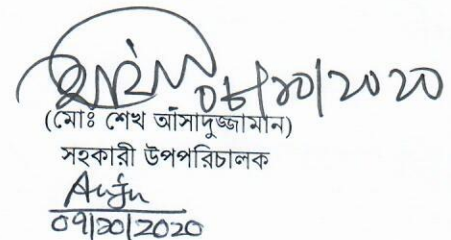 ০৮/১০/২০২০
(মোঃ শেখ আসাদুজ্জামান)
সহকারী উপপরিচালক
০৭/১০/২০২০